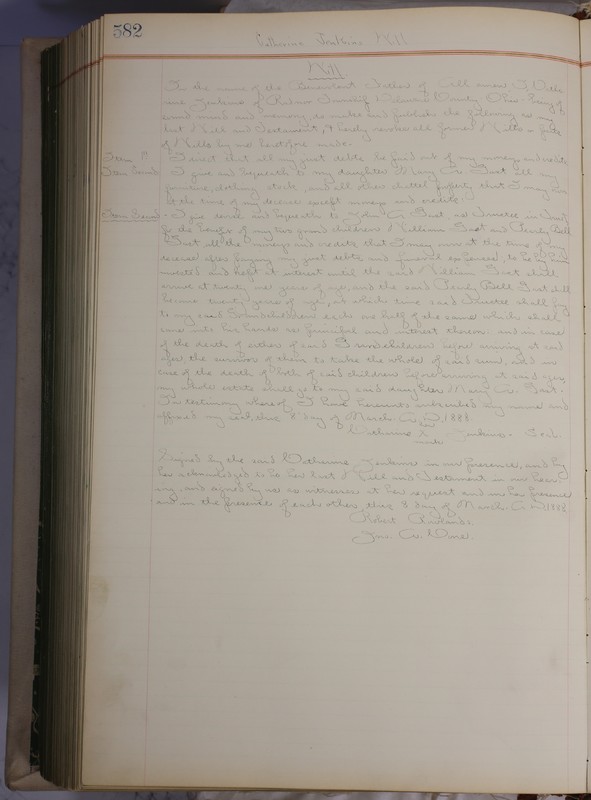 582
Catherine Jenkins Will
Will
In the name of the Benevolent Father of all amen I Cathe
rine Jenkins of Radnor Township Delaware County, Ohio being of
sound mind and memory, do make and publish the following as my
last Will and Testament, & hereby revoke all former Wills
of Wills by me heretofore made.
Item 1st I direct that all my just debts be paid out of my moneys and credits
Item Second I give and bequeath to my daughter Mary A. Gast all my
furniture, clothing, stock, and all other chattel property that I may have
at the time of my decease except moneys and credits.
Item Second - I give and bequeath to John A. Gast, as Trustee in Trust
for the benefit of my two grand children William Gast and Pearly Bell
Gast all the moneys and credits that I may own at the time of my
decease after paying my just debts and funeral expenses, to be by him
invested and kept at interest until the said William Gast shall
arrive at twenty one years of age, and the said Pearly Bell Gast shall
become twenty years of age, at which time said Trustee shall pay
to my said Grandchildren each one half of the same which shall
come into his hands as principal and interest thereon and in case
of the death of either of said Grandchildren before arriving at said
age, the survivor of them to take the whole of said sum, and in
case of the death of both of said children before arriving at said ages,
my whole estate shall go to my said daughter Mary A. Gast.
In testimony whereof I have hereunto subscribed my name and
affixed my seal, this 8 day of March A.D. 1888.
her
Catherine X Jenkins - Seal.
mark
Signed by the said Catherine Jenkins in our presence, and by
her acknowledged to be her last Will and Testament in our hear
ing, and signed by us as witnesses at her request and in her presence
and in the presence of each other, this 8 day of March A.D. 1888
Robert Rowlands.
Jno. A. Cone.